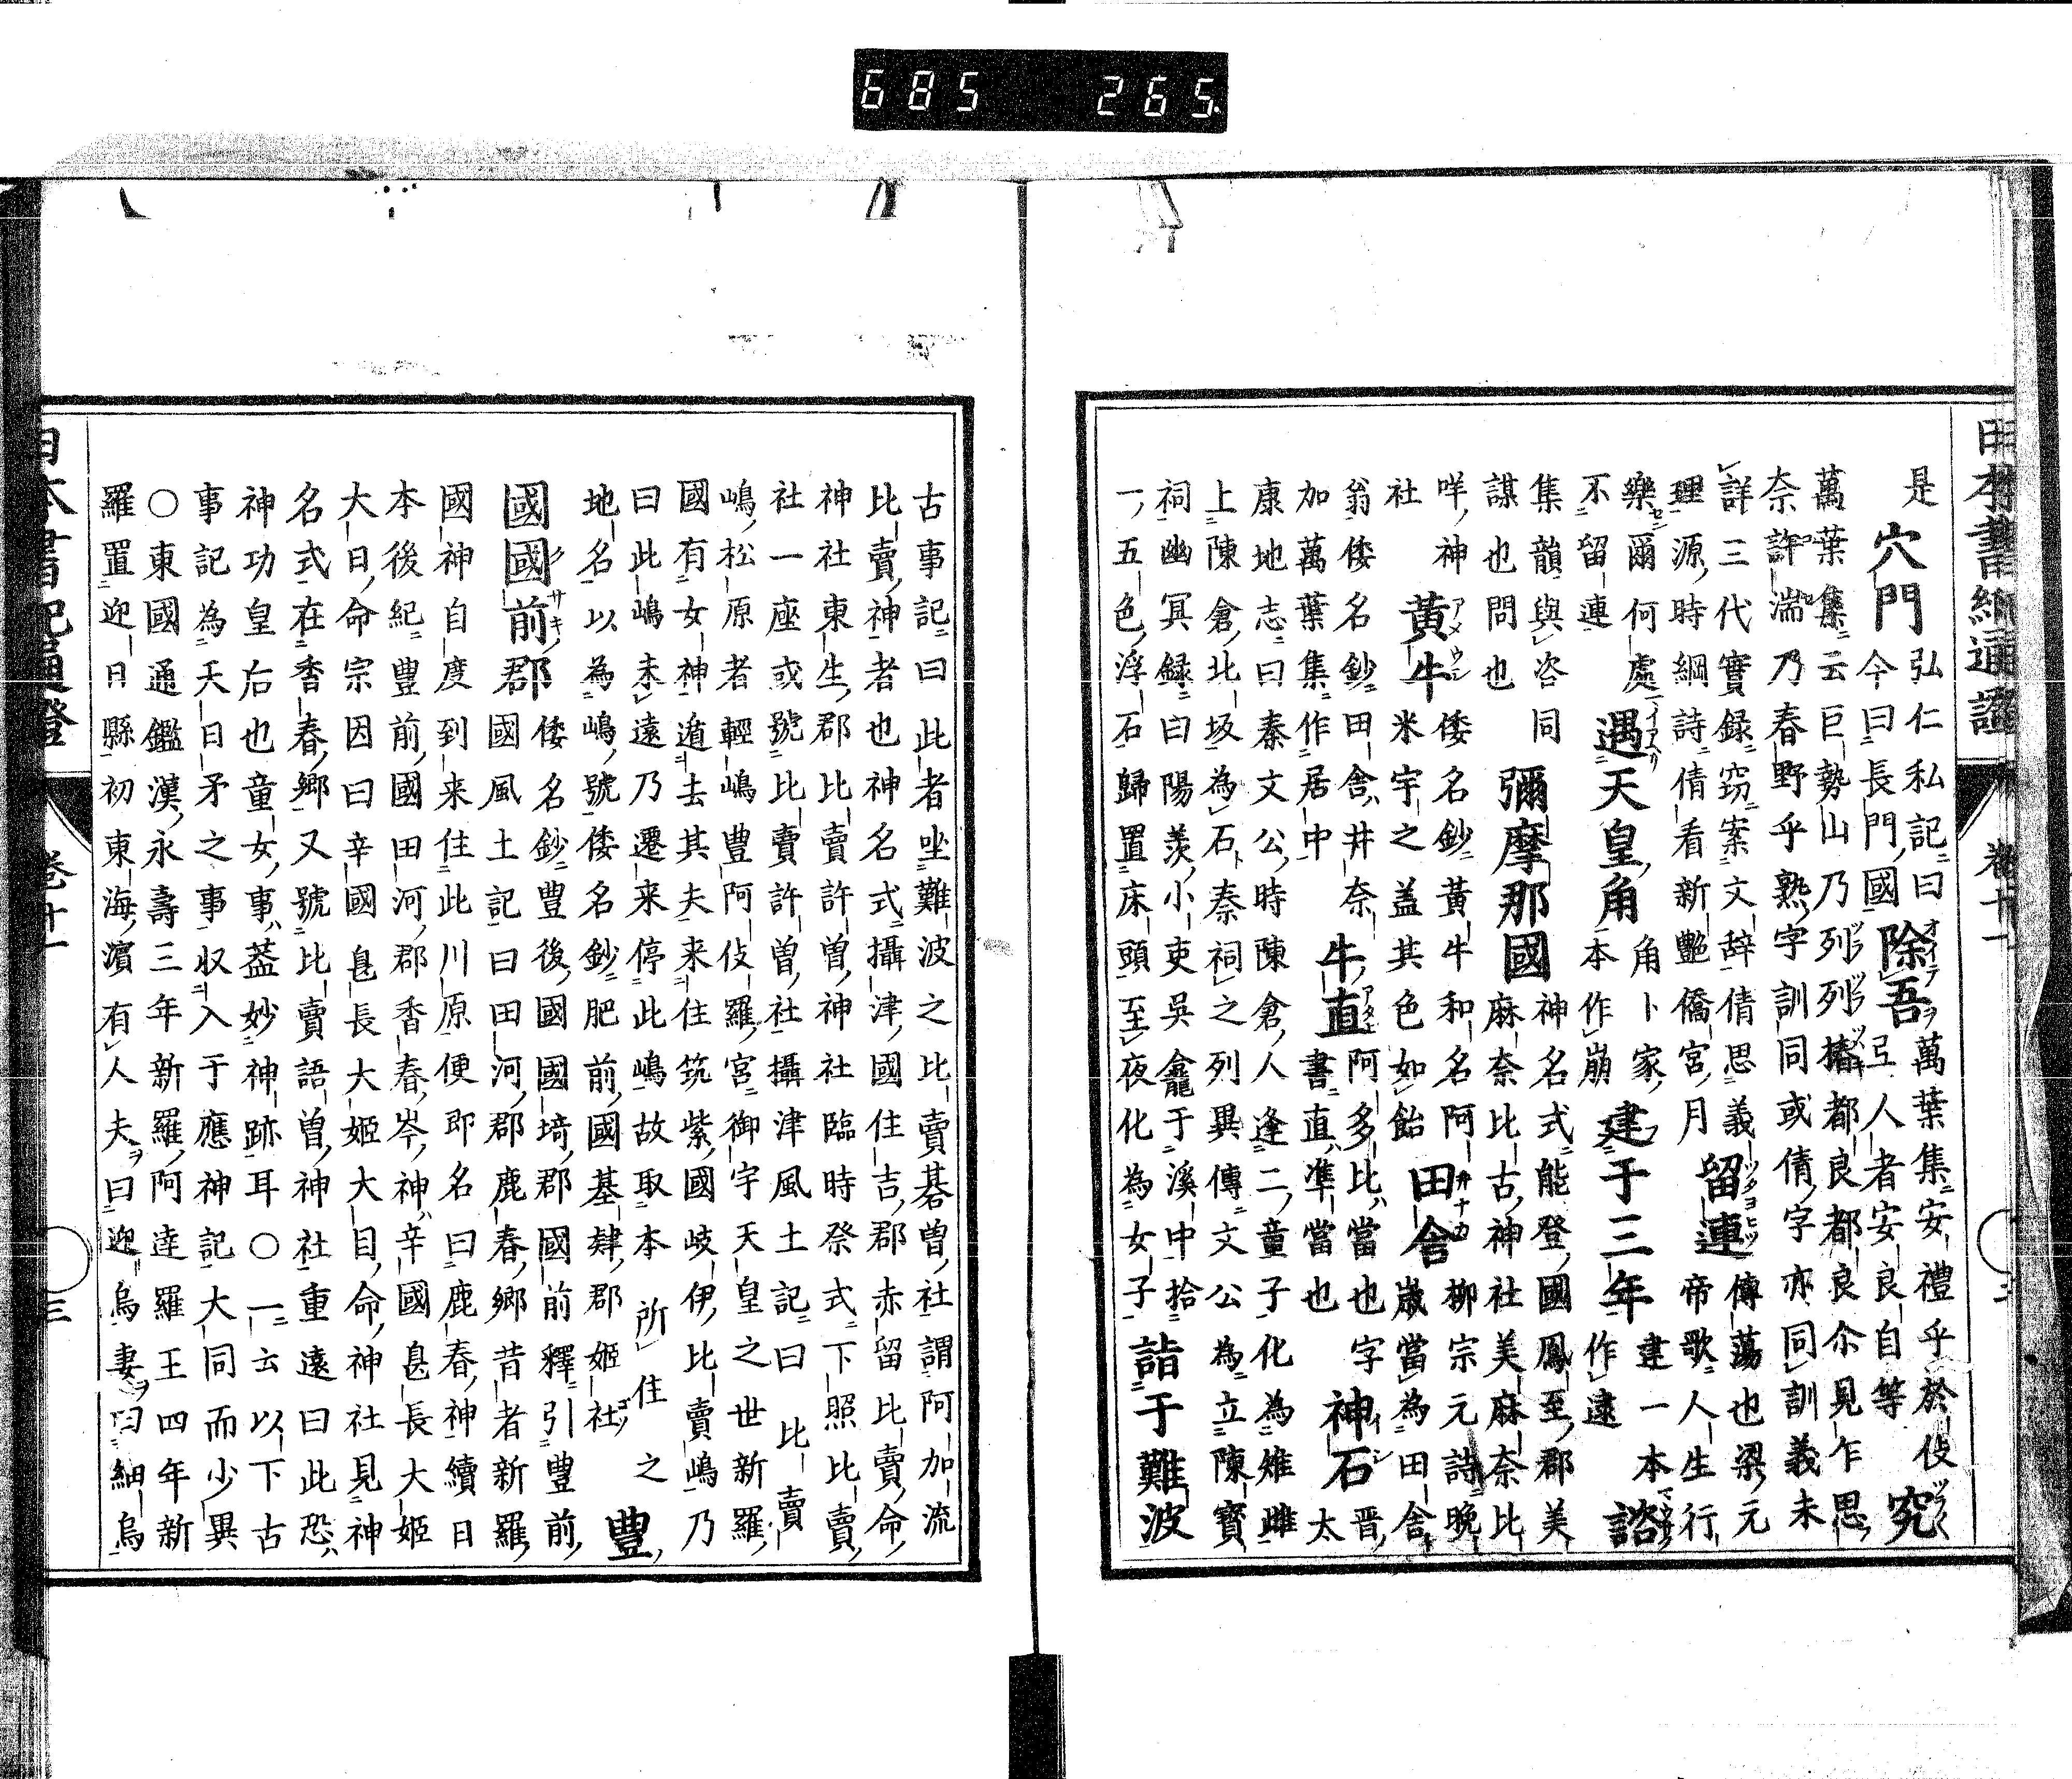 日本書紀通證 卷十一 三
是穴門弘仁私記曰
今曰長門國除吾萬葉集安禮乎於伎
亙人者安良自等究
萬葉集云巨勢山乃列列椿都良都良尓見乍思
奈許湍乃春野乎熟字訓同或倩字亦同訓義未
詳三代實録窃案文辞倩思義
理源時綱詩倩看新艶僑宮月留連傳蕩也梁元
帝歌人生行
樂爾何處
不留連遇天皇角角卜家
本作崩建于三年建一本
作遠諮
集韻與咨同
謀也問也彌摩那國神名式能登國鳳至郡美
麻奈比古神社美麻奈比
咩神
社黃牛倭名鈔黃牛和名阿
米宇之盖其色如飴田舎柳宗元詩晩
歳當為田舎
翁倭名鈔田舎井奈
加萬葉集作居中牛直阿多比當也字
書直準當也神石晋太
康地志曰秦文公時陳倉人逢二童子化為雉雌
上陳倉北坂為石秦祠之列異傳文公為立陳寶
祠幽冥録曰陽羨小吏吳龕于溪中拾
一五色浮石歸置床頭至夜化為女子詣于難波
古事記曰此者坐難波之比賣碁曽社謂阿加流
比賣神者也神名式攝津國住吉郡赤留比賣命
神社東生郡比賣許曽神社臨時祭式下照比賣
社一座或號比賣許曽社攝津風土記曰比賣
嶋松原者輕嶋豊阿伎羅宮御宇天皇之世新羅
國有女神遁去其夫来住筑紫國岐伊比賣嶋乃
曰此嶋未遠乃遷来停此嶋故取本所住之
地名以為嶋號倭名鈔肥前國基肄郡姫社豊
國國前郡倭名鈔豊後國國埼郡國前釋引豊前
國風土記曰田河郡鹿春郷昔者新羅
國神自度到来住此川原便即名曰鹿春神續日
本後紀豊前國田河郡香春岑神辛國息長大姫
大目命宗因曰辛國息長大姫大目命神社見神
名式在香春郷又號比賣語曽神社重遠曰此恐
神功皇后也童女事蓋妙神跡耳○一云以下古
事記為天日矛之事収入于應神記大同而少異
○東國通鑑漢永壽三年新羅阿達羅王四年新
羅置迎日縣初東海濱有人夫曰迎烏妻曰細烏
日本書紀通證 卷十一 三
685 265